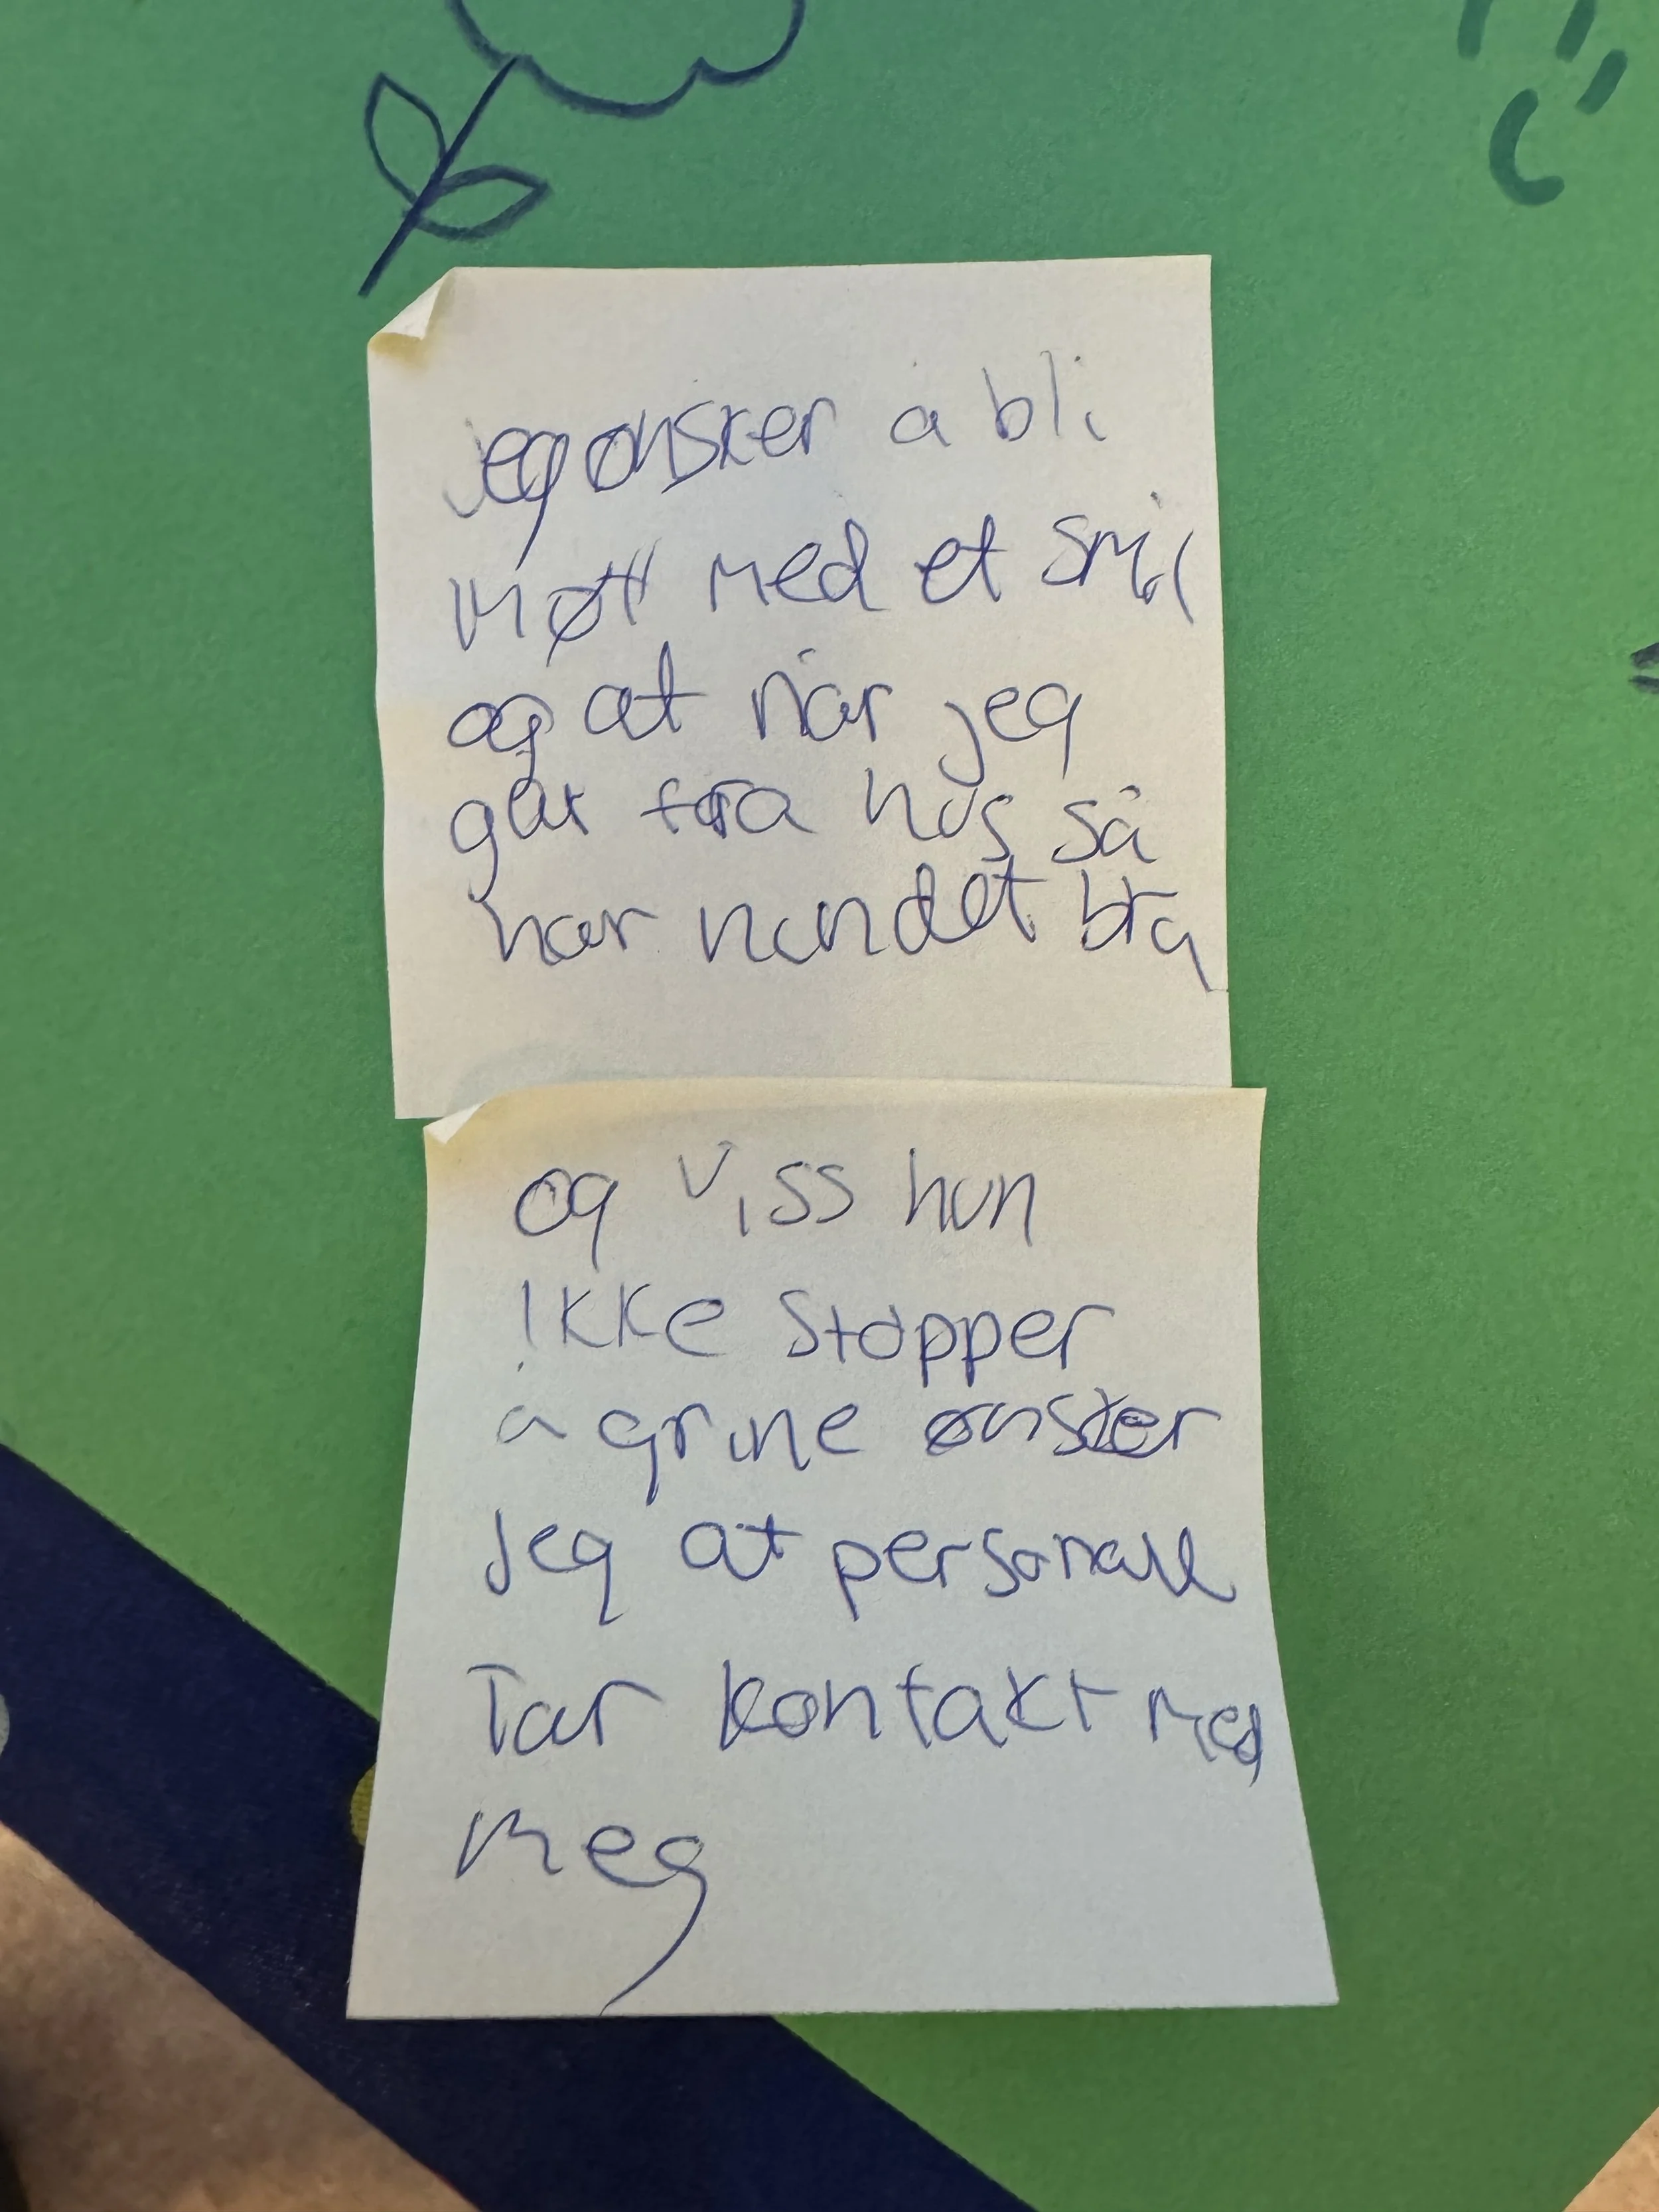 jeg ønsker å bli
møtt med et smil
og at når jeg
går fra hos så
har hun det bra
og viss hun
ikke stopper
å grine ønsker
Jeg at personall
Tar kontakt med
meg